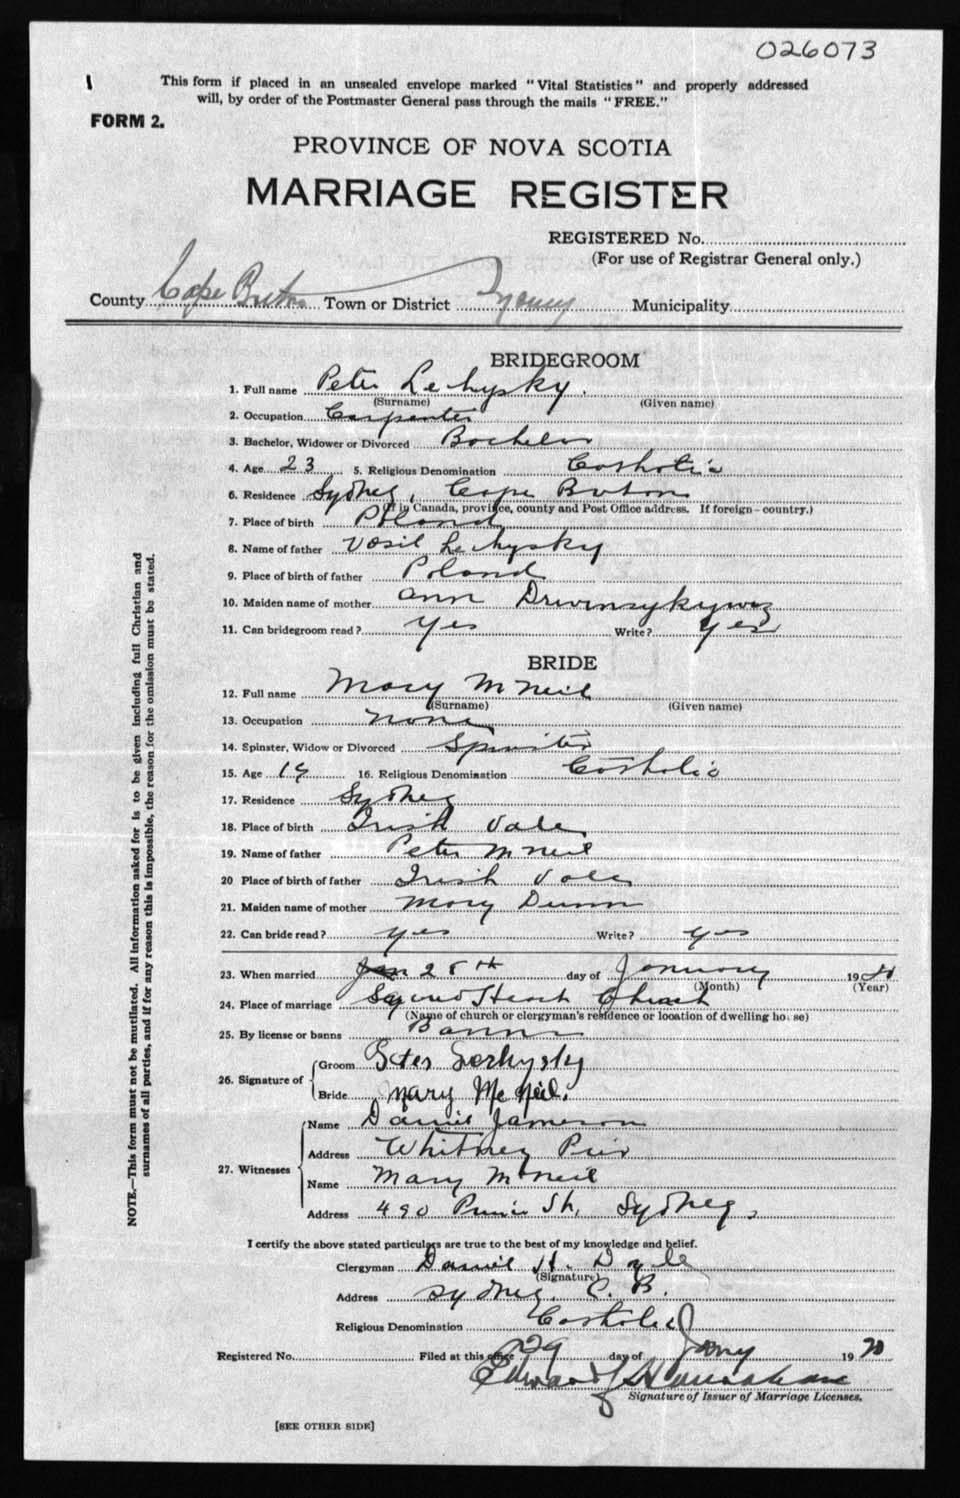 026073
This form if placed in an unsealed envelope marked "Vital Statistics" and properly addressed
will, by order of the Postmaster General pass through the mails "FREE."
FORM 2.
PROVINCE OF NOVA SCOTIA
MARRIAGE REGISTER
REGISTERED No.
(For use of Registrar General only.)
County Cape Breton Town or District Sydney Municipality
BRIDEGROOM
1. Full name Peter Lehysky.
(Surname) (Given name)
2. Occupation Carpenter
3. Bachelor, Widower or Divorced Bachelor
4. Age 23 5. Religious Denomination Catholic
6. Residence Sydney, Cape Breton
(If in Canada, province, county and Post Office address. If foreign - country.)
7. Place of birth Poland
8. Name of father Vasil Lehysky
9. Place of birth of father Poland
10. Maiden name of mother Ann
11. Can bridegroom read? yes Write? yes
BRIDE
12. Full name Mary McNeil
(Surname) (Given name)
13. Occupation none
14. Spinster, Widow or Divorced Spinster
15. Age 19 16. Religious Denomination Catholic
17. Residence Sydney
18. Place of birth Irish Vale
19. Name of father Peter McNeil
20 Place of birth of father Irish Vale
21. Maiden name of mother Mary Dunn
22. Can bride read? yes Write? yes
23. When married 28th day of January 1920
(Month) (Year)
24. Place of marriage Sacred Heart Church
(Name of church or clergyman's residence or location of dwelling house)
25. By license or banns Banns
26. Signature of
Groom Peter
Bride Mary McNeil.
27. Witnesses
Name Daniel Jameson
Address Whitney Pier
Name Mary McNeil
Address 490 Prince St, Sydney,
I certify the above stated particulars are true to the best of my knowledge and belief.
Clergyman Daniel H. Doyle
(Signature)
Address Sydney, C. B.
Religious Denomination Catholic
Registered No. Filed at this office 29 day of Jany 1920
Edward J
Signature of Issuer of Marriage Licenses.
[SEE OTHER SIDE]
NOTE.—This form must not be mutilated. All information asked for is to be given including full Christian and
surnames of all parties, and if for any reason this is impossible, the reason for the omission must be stated.